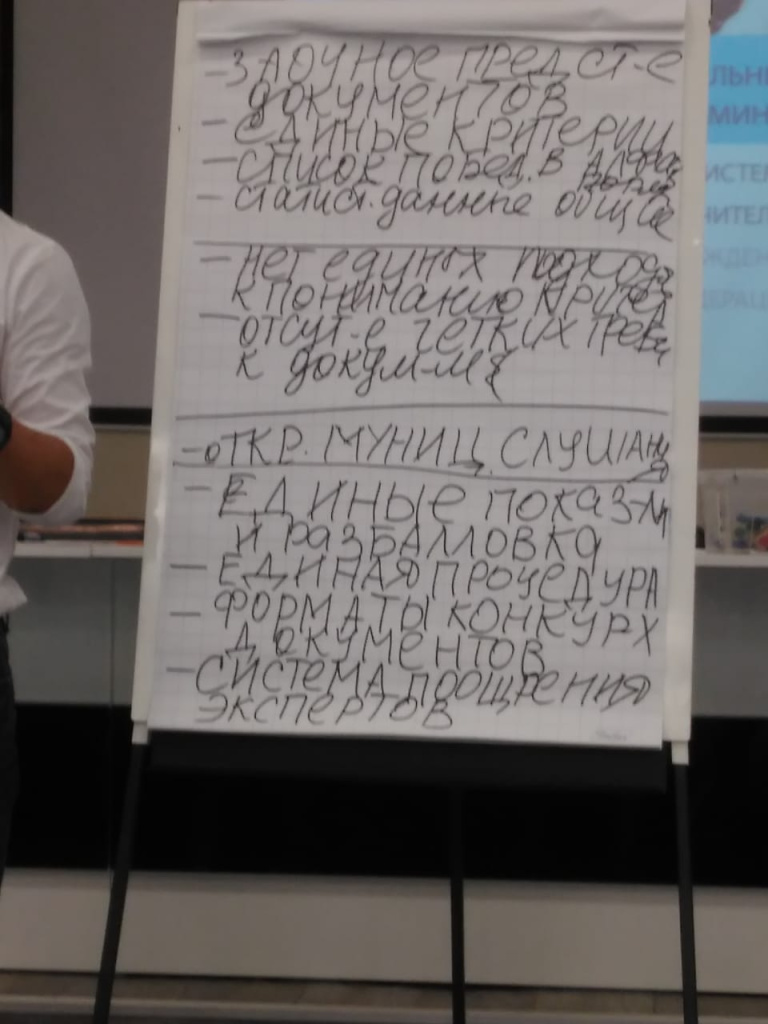 - ЗАОЧНОЕ ПРЕДСТ-Е
ДОКУМЕНТОВ
- ЕДИНЫЕ КРИТЕРИИ
- СПИСОК ПОБЕД. В
- статист. данные общие
- нет единых подход
к пониманию критер
- отсут-е четких треб
к докум-м
- ОТКР. МУНИЦ. СЛУШАНИЯ
- ЕДИНЫЕ ПОКАЗ-ЛИ
И РАЗБАЛЛОВКА
- ЕДИНАЯ ПРОЦЕДУРА
- ФОРМАТЫ КОНКУРХ
ДОКУМЕНТОВ
- СИСТЕМА ПООЩРЕНИЯ
ЭКСПЕРТОВ
ЛЬН
МИН
ИСТЕМ
ЧИТЕЛ
ЖДЕН
ДЕРАЦ